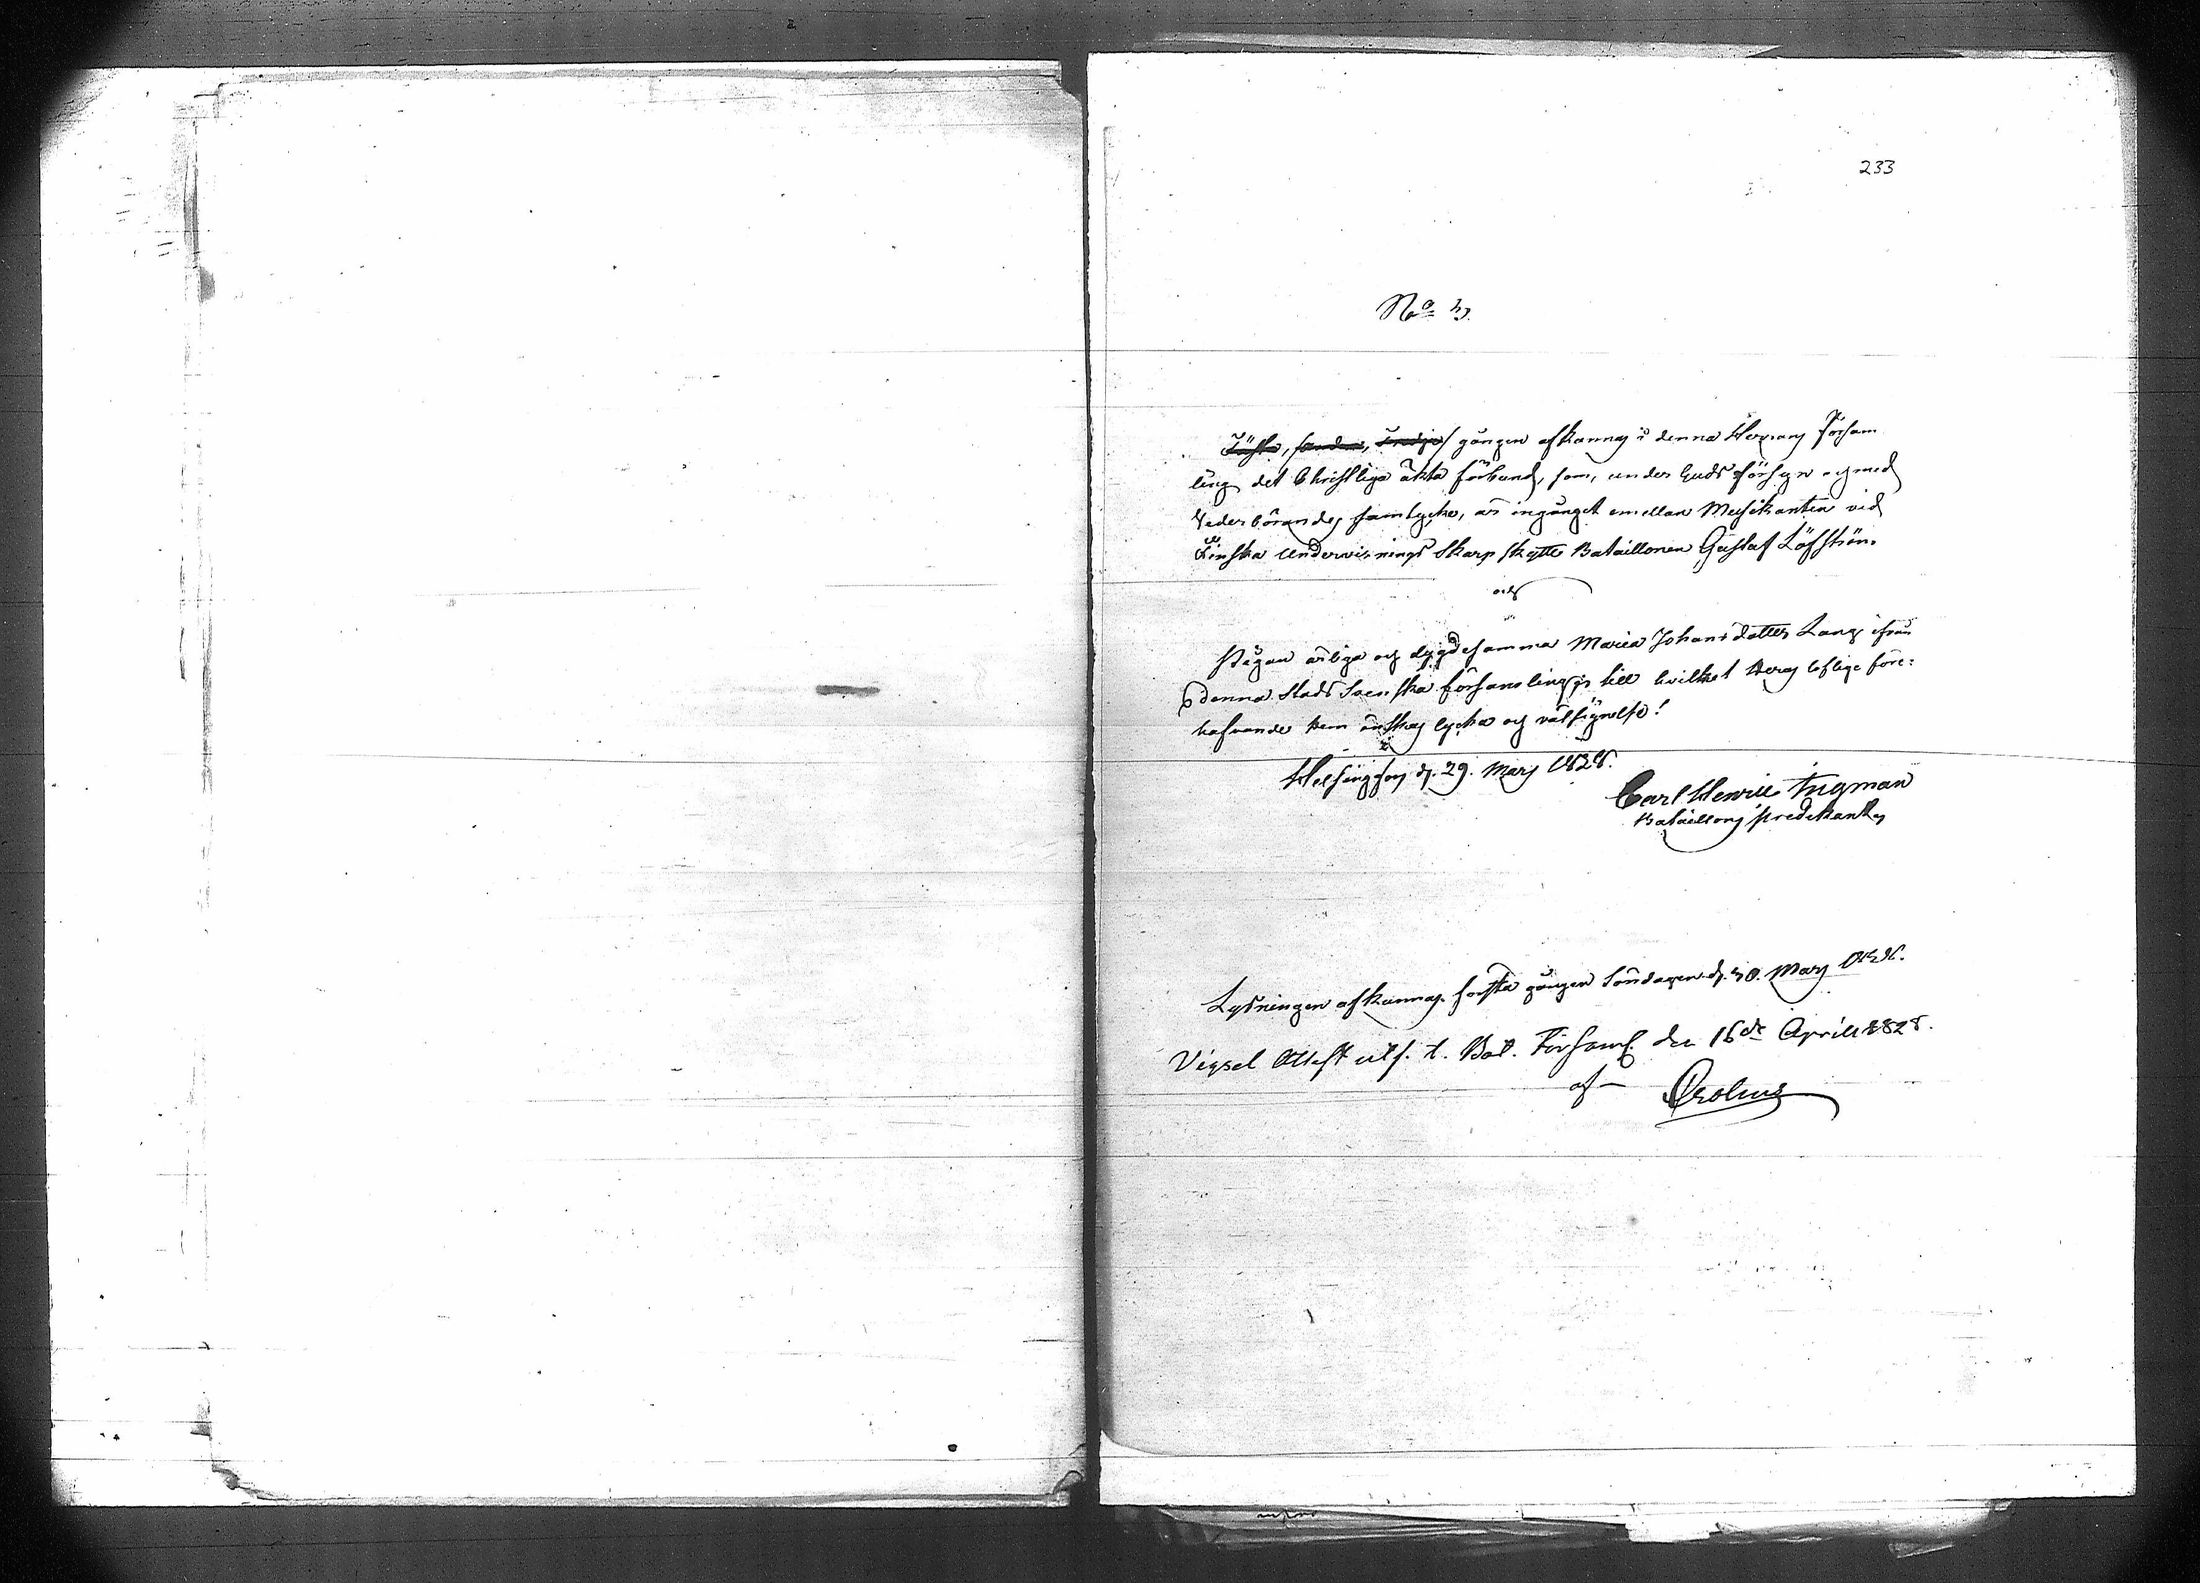 233
No 3.
Första, andra, tredje gången afkunnas i denna Herrans Försam
ling det Christliga äkta förbund, som, under Guds försyn och med
Vederbörandes samtycke, är ingånget emellan Musikanten vid
Finska Undervisnings Skarp skytte Bataillonen Gustaf Löfström
och
Pigan ärliga och dygdesamma Maria Johansdotter Lang ifrån
denna Stads Svenska församling; till hvilket deras loflige före-
hafvande dem önskas lycka och välsignelse!
Helsingfors d. 29. Mars 1828.
Carl Henric Ingman
Bataillons predikant
Lysningen afkunnas första gången Söndagen d. 30. Mars 1828.
Vigsel Attest utf. t. Bat. Församl. den 16de April 1828.
af